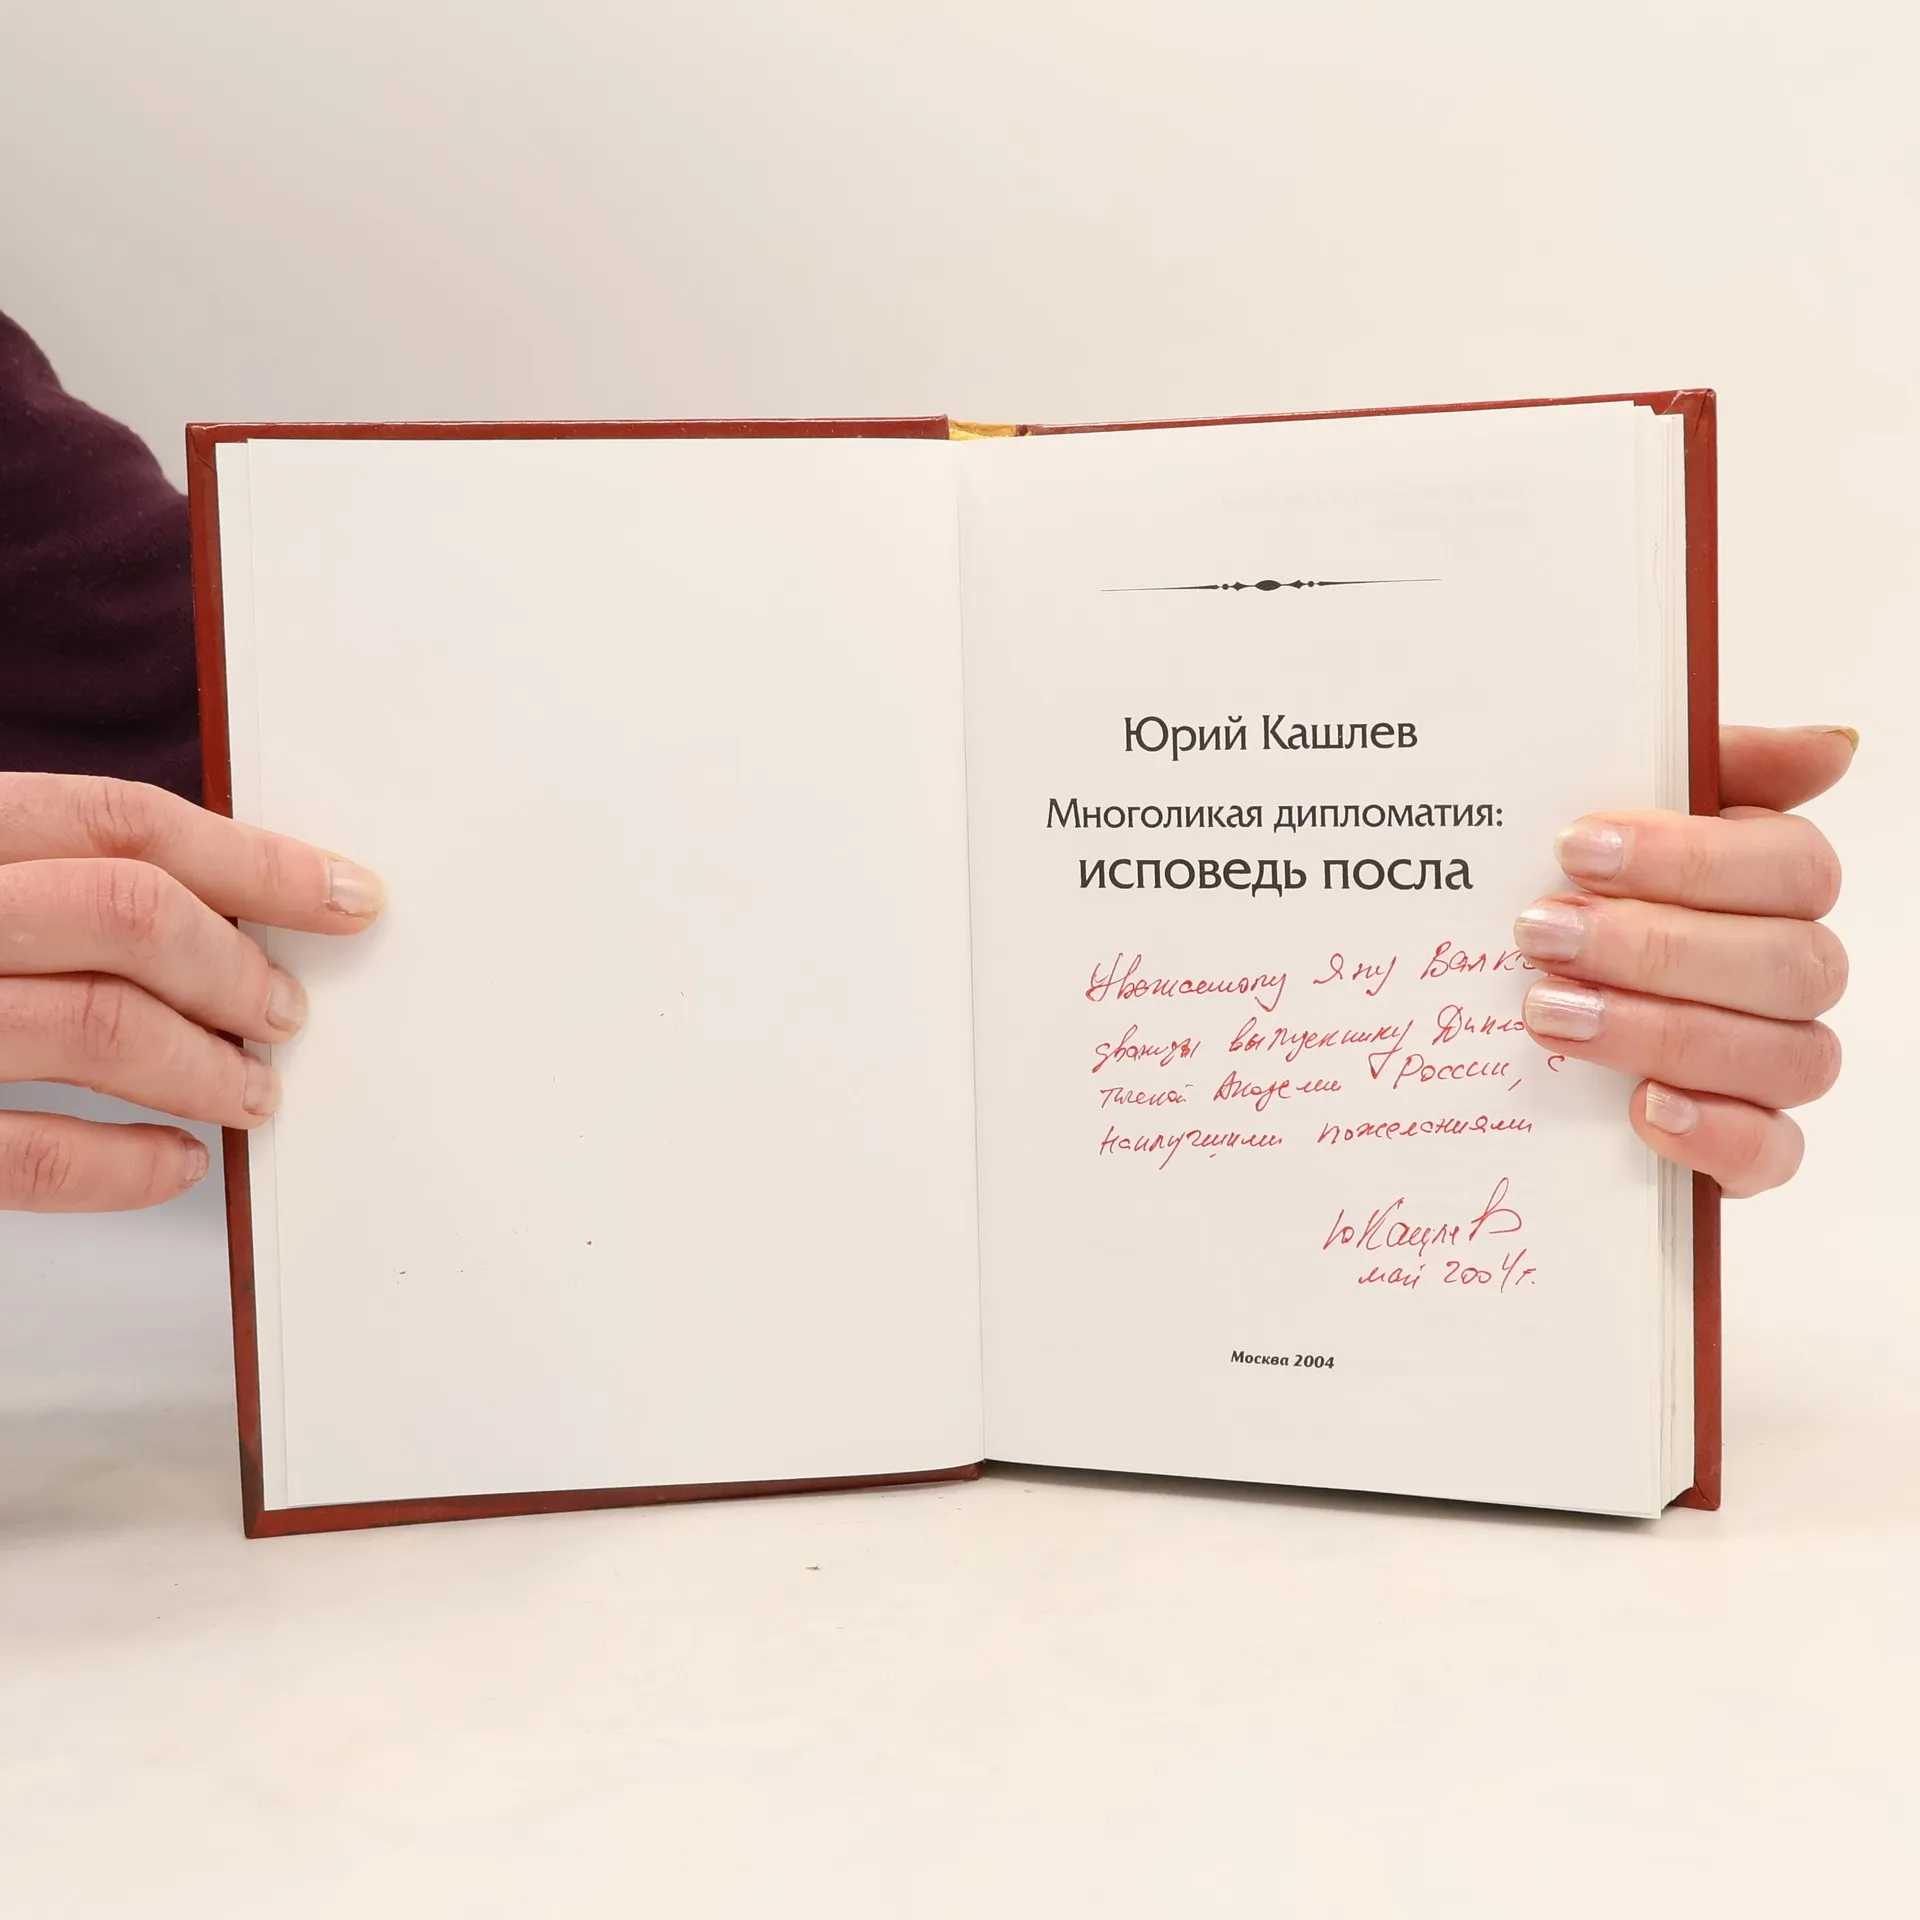 Юрий Кашлев
Многоликая дипломатия:
исповедь посла
Уважаемому Яну Валк
дважды выпускнику Дипло
тической Академии России, с
наилучшими пожеланиями
ЮКашлев
май 2004г.
Москва 2004